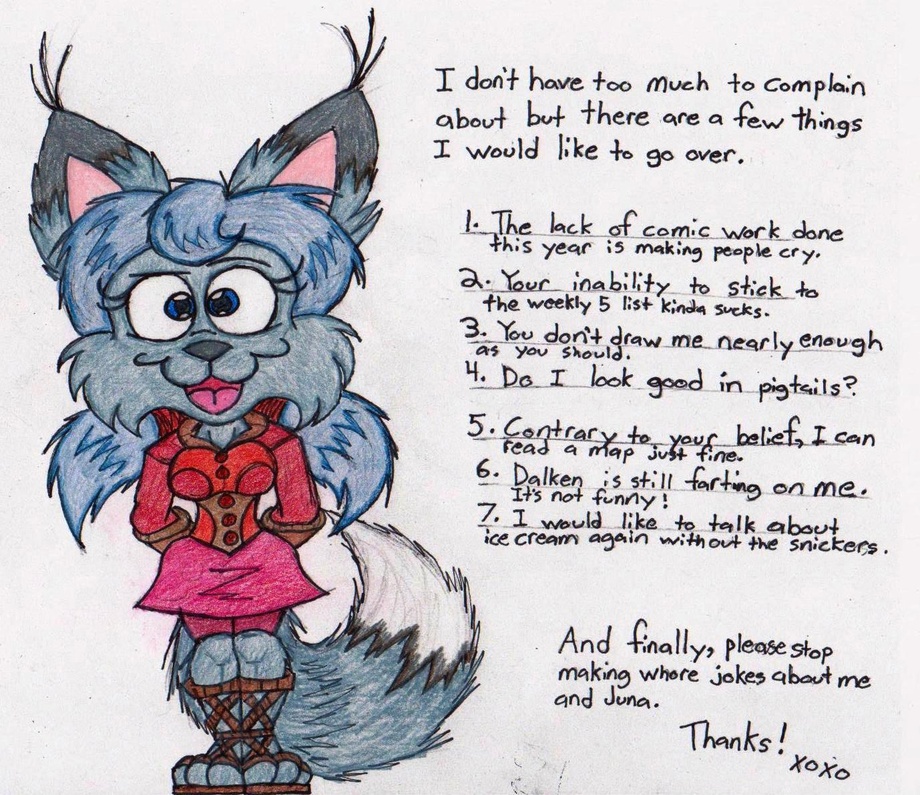 I don't have too much to complain
about but there are a few things
I would like to go over.
1. The lack of comic work done
this year is making people cry.
2. Your inability to stick to
the weekly 5 list kinda sucks.
3. You don't draw me nearly enough
as you should.
4. Do I look good in pigtails?
5. Contrary to your belief, I can
read a map just fine.
6. Dalken is still farting on me.
It's not funny!
7. I would like to talk about
ice cream again without the snickers.
And finally, please stop
making whore jokes about me
and Juna.
Thanks!
xoxo